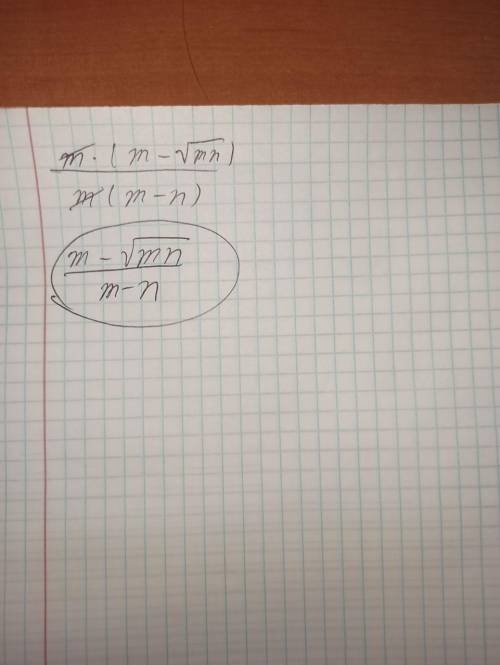 m · (m - √mn)
m (m - n)
m - √mn
m - n